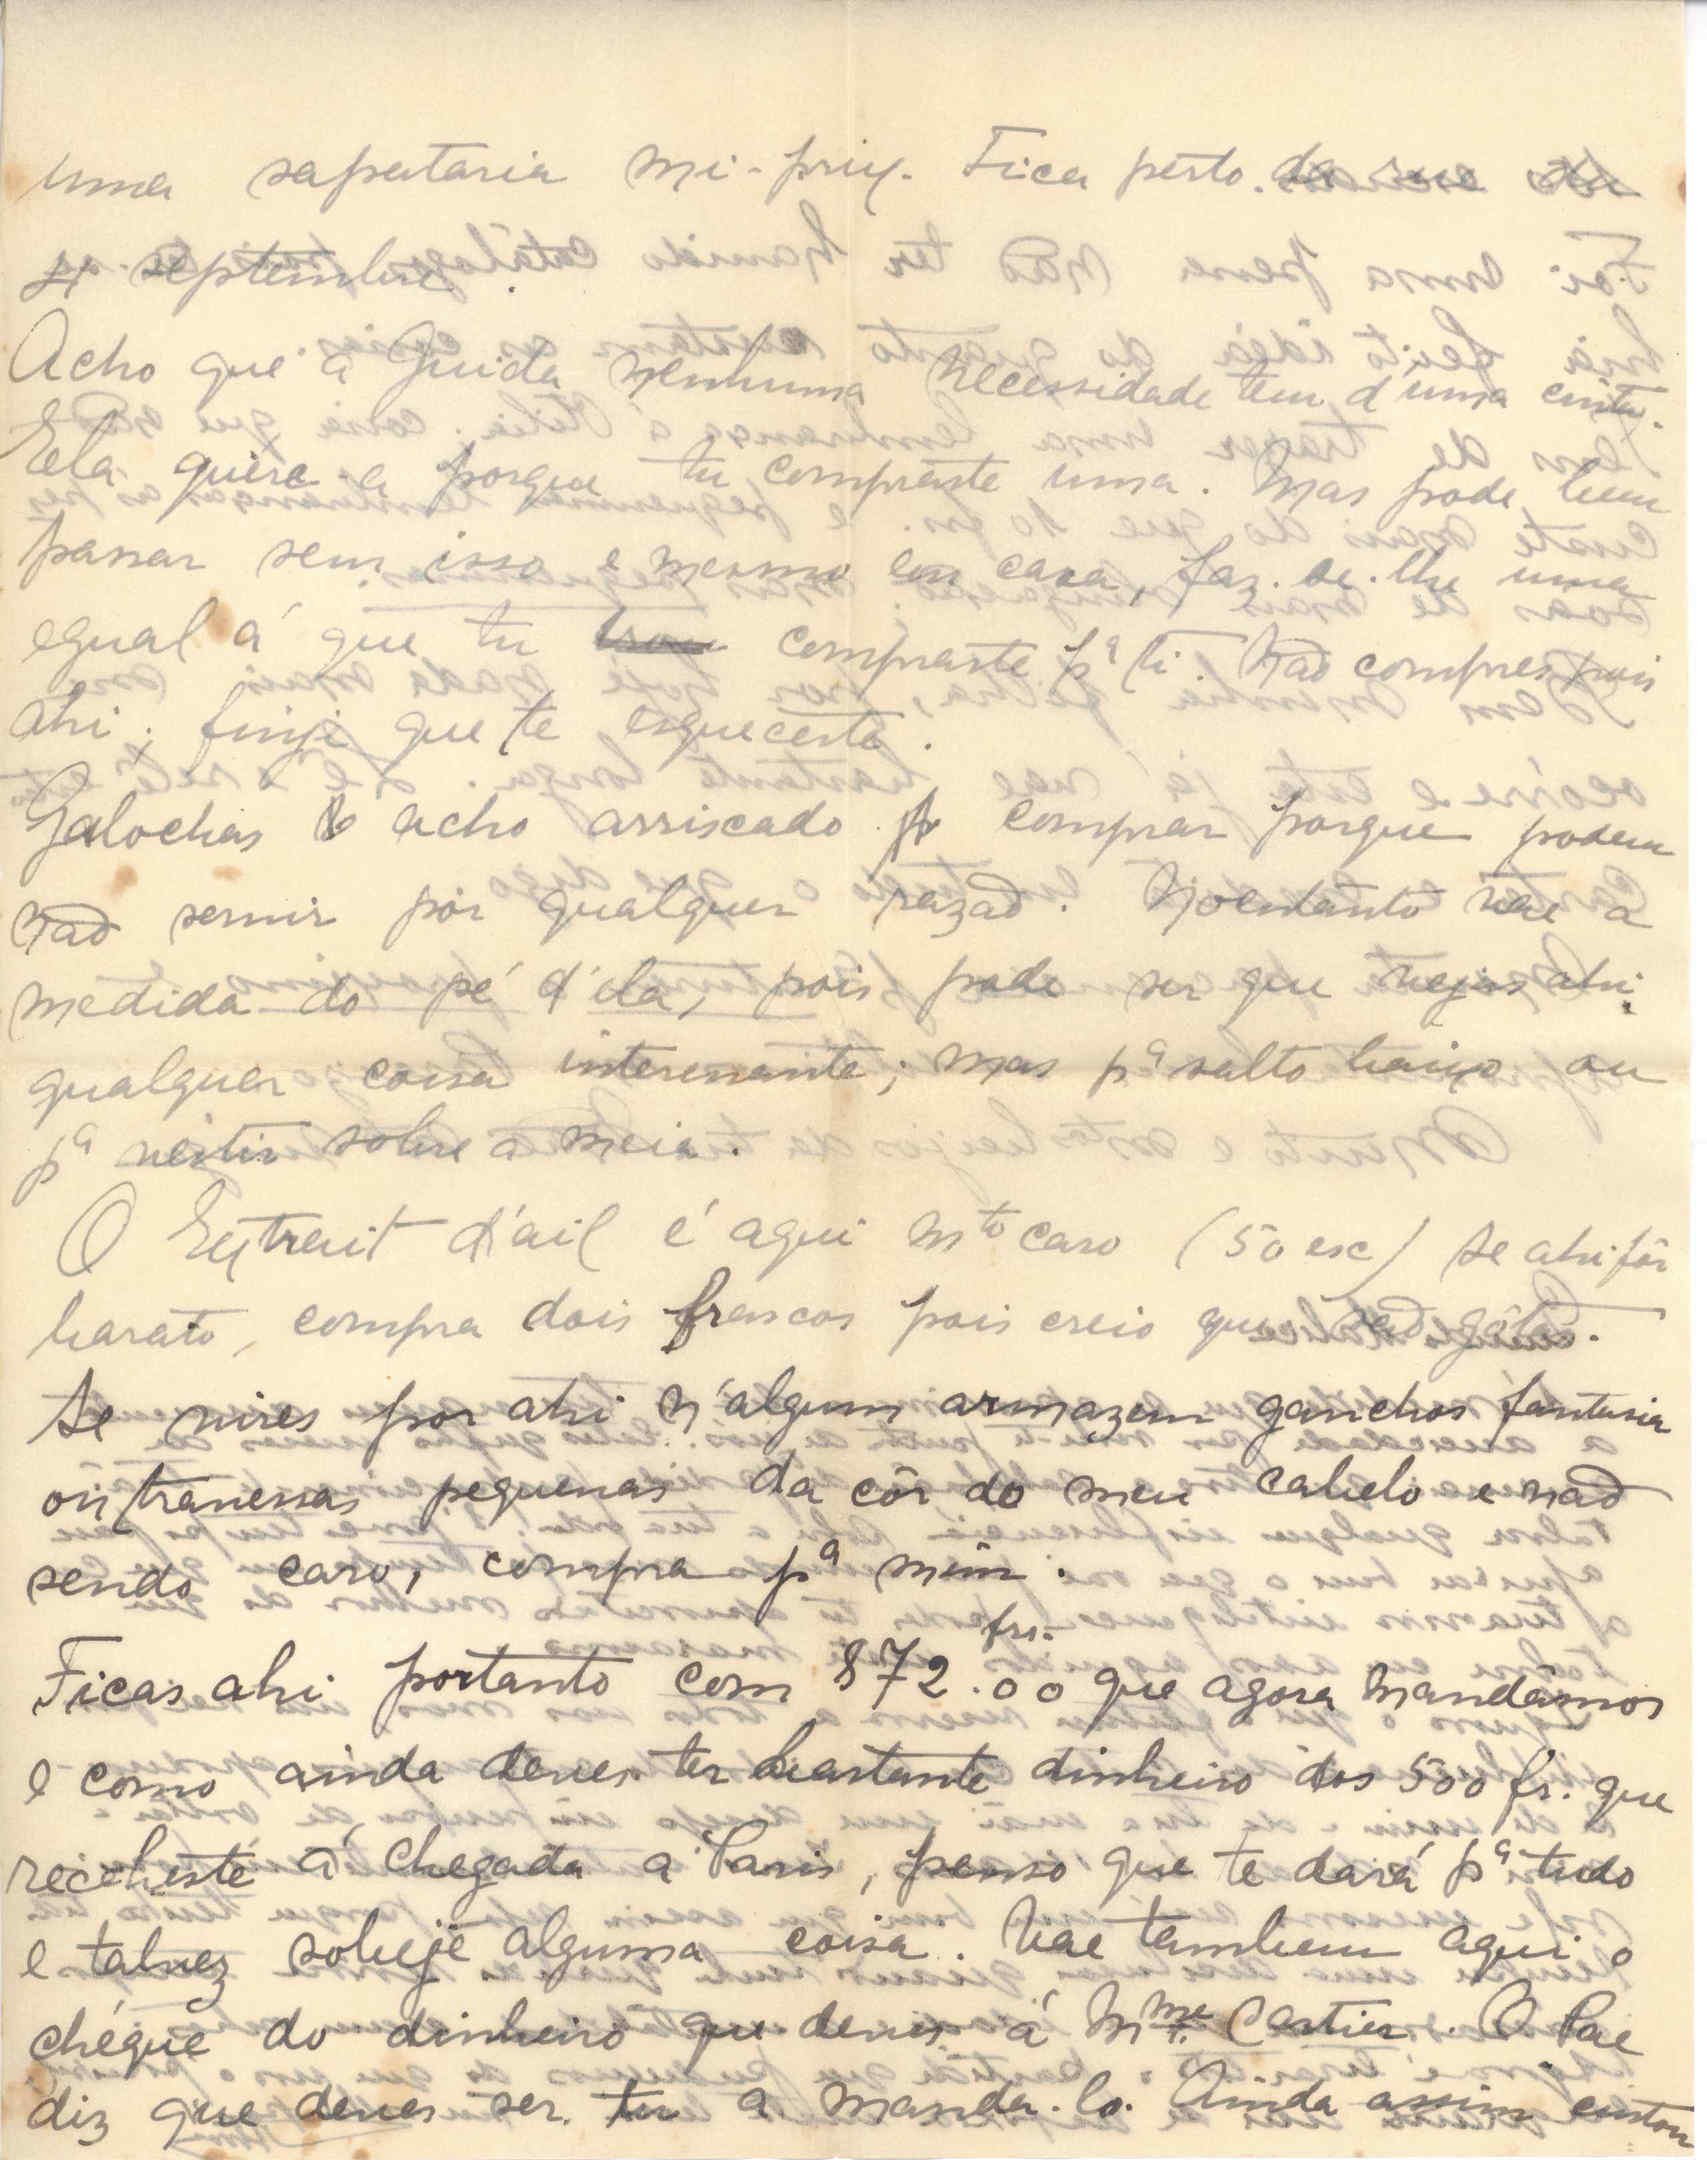 uma sapataria mi-prix. Fica perto da rue du
4 septembre.
Acho que a Guida nenhuma necessidade tem d'uma cinta.
Ela quere-a porque tu compraste uma. Mas pode bem
passar sem isso e mesmo em casa, faz-se-lhe uma
egual á que tu compraste pª ti. Não compres pois
ahi; finje que te esqueceste.
Galochas acho arriscado comprar porque podem
não servir por qualquer razão. Noentanto vae a
medida do pé d'ela, pois pode ser que vejas ahi
qualquer coisa interessante; mas pª salto baixo ou
pª vestir sobre a meia.
O Extrait d'ail é aqui mto caro (50 esc) se ahi fôr
barato, compra dois frascos pois creio que são gôtas.
Se vires por ahi n'algum armazem ganchos fantasia
ou travessas pequenas da côr do meu cabelo e não
sendo caro, compra pª mim.
Ficas ahi portanto com 872.00 frs. que agora mandâmos
e como ainda deves ter bastante dinheiro dos 500 fr. que
recebeste á chegada a Paris, penso que te dará pª tudo
e talvez sobeje alguma coisa. Vae tambem aqui o
chéque do dinheiro que deves á Mme Cartier. O Pae
diz que deves ser tu a manda-lo. Ainda assim custou